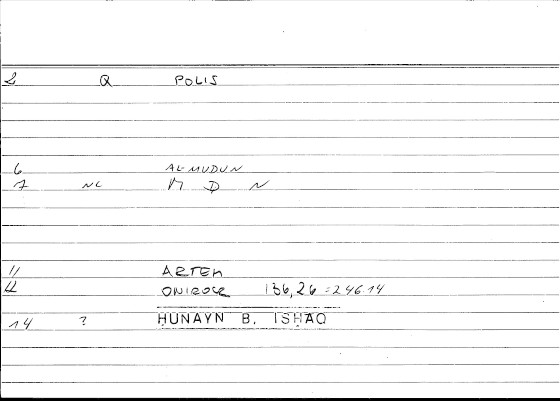 2 Q POLIS
6 AL-MUDUN
7 NC M D N
11 ARTEM
12 ONIROCR 136,26 = 246.14
14 ? ḤUNAYN B. ISḤAQ